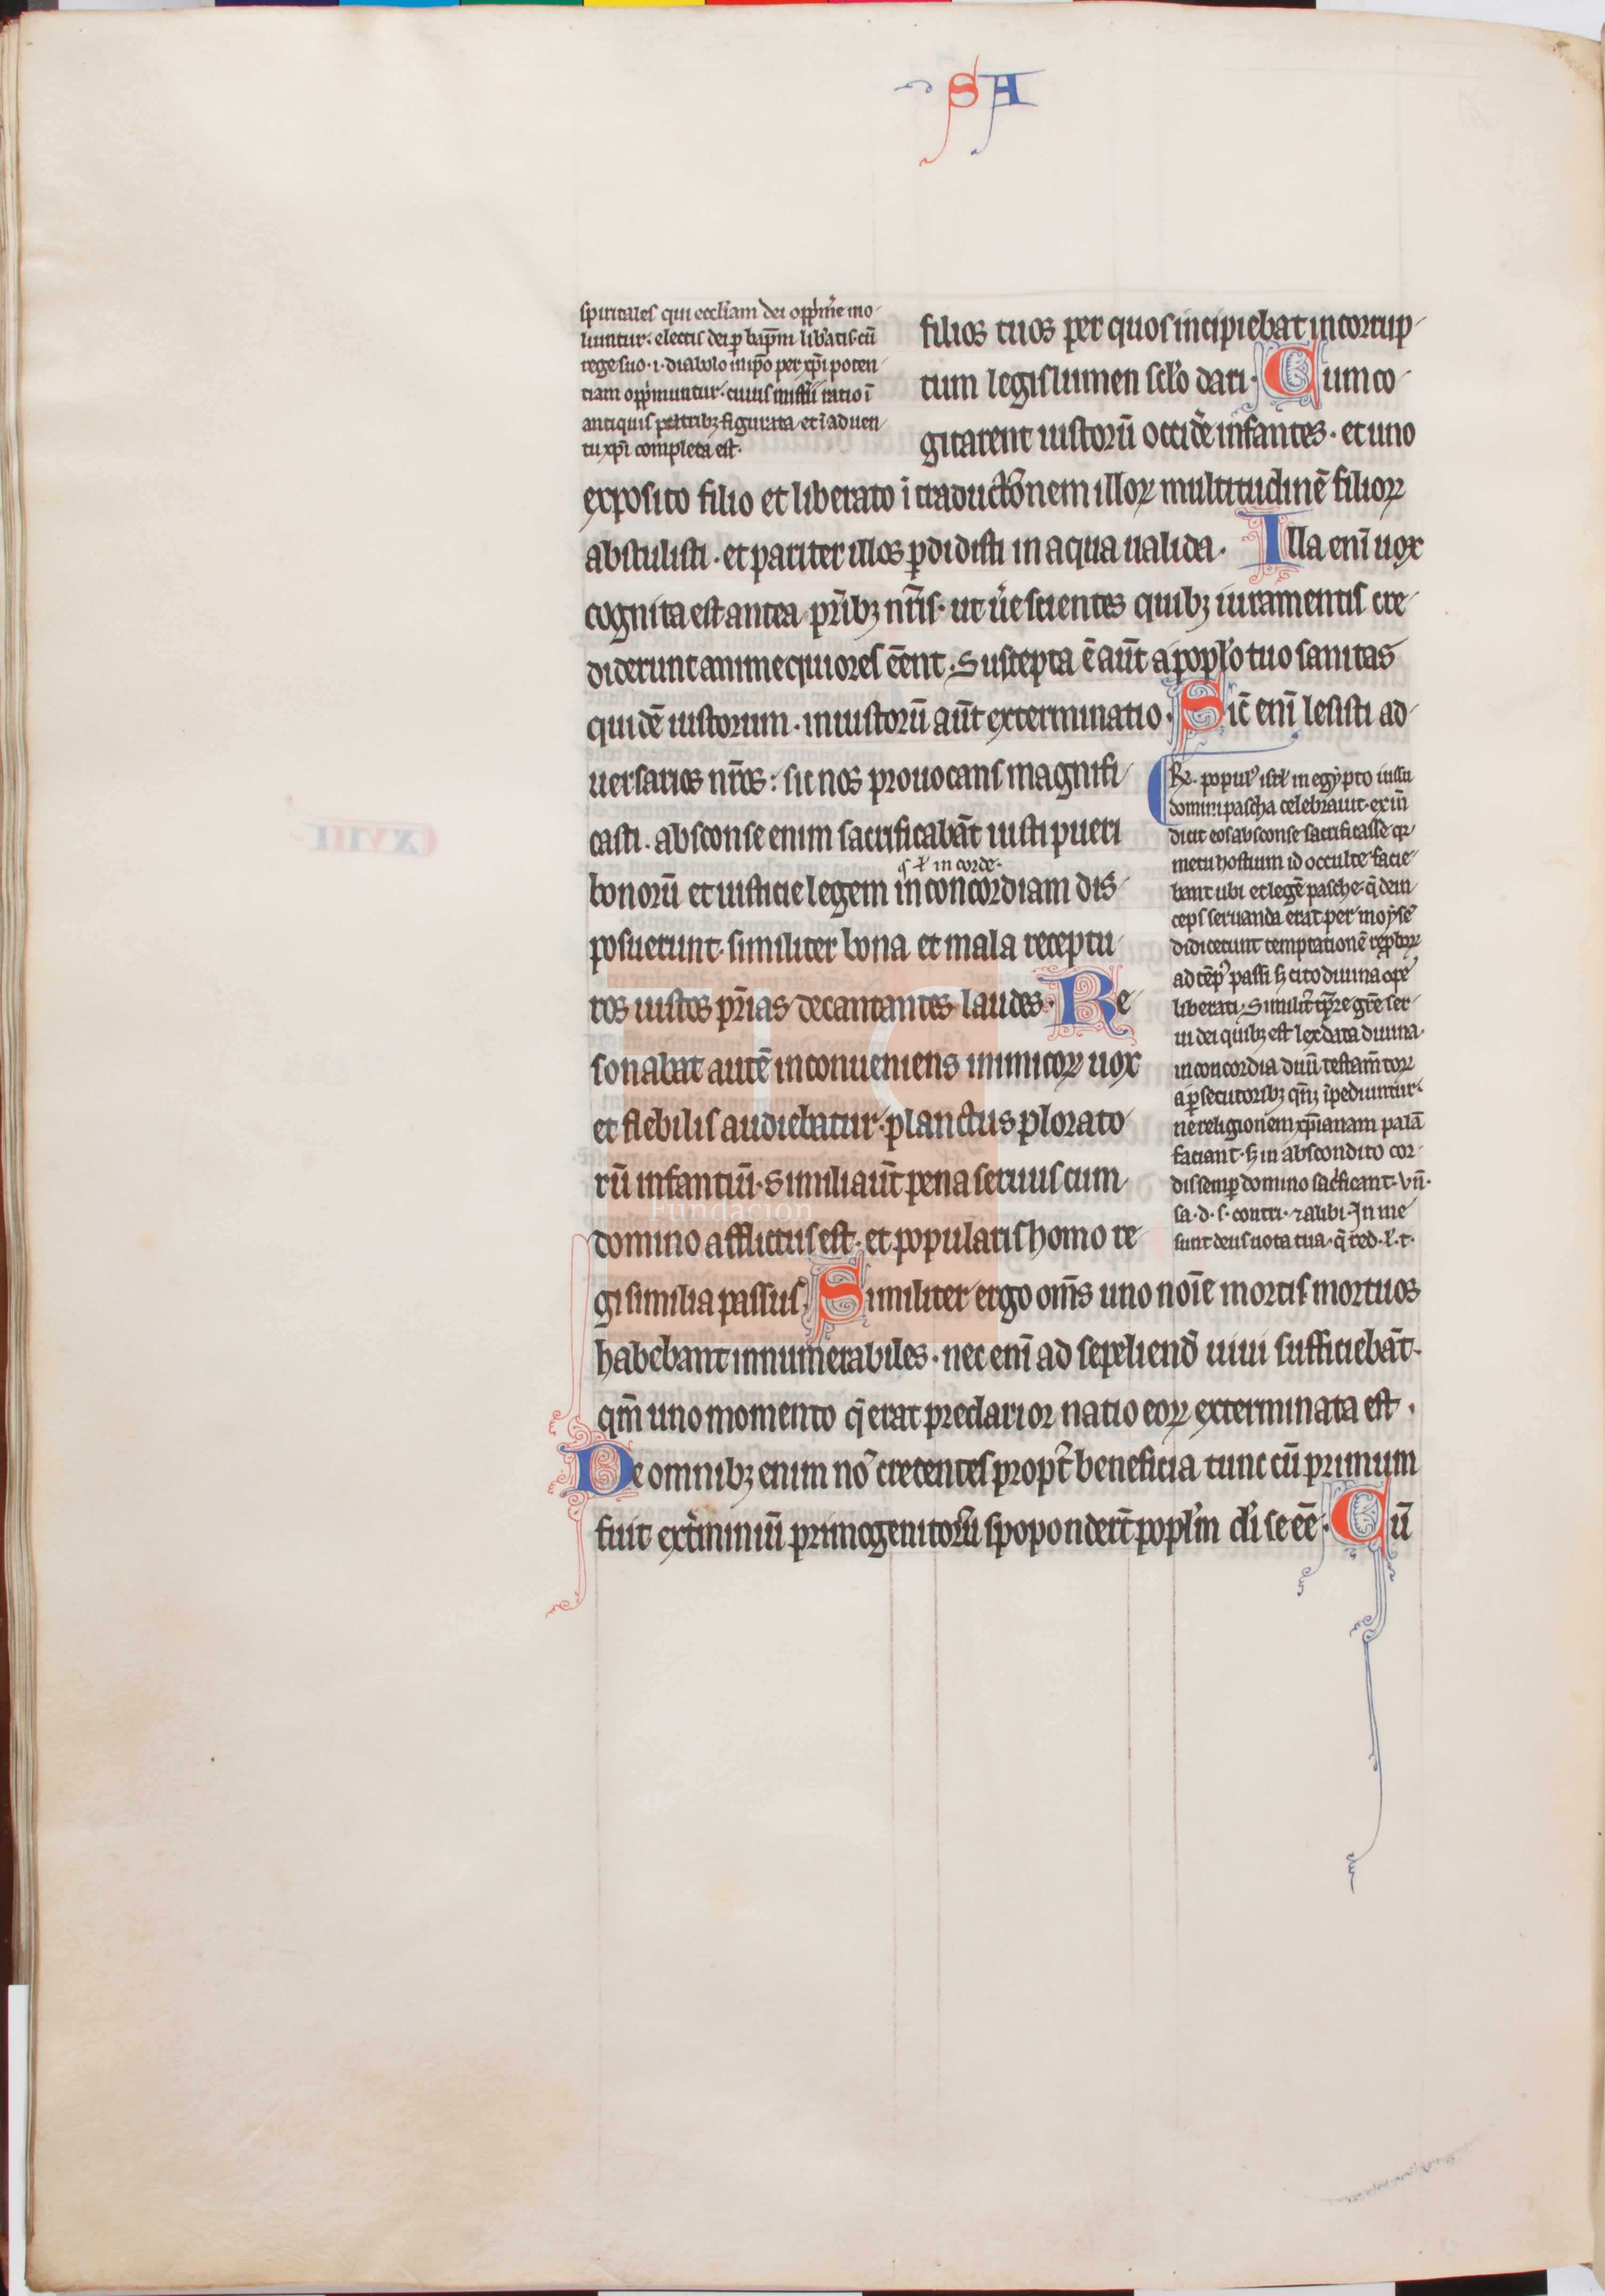 SA
spiritales qui eccl̄iam dei opp̄me mo-
liuntur: electis dei ꝑ bapt̄m lib̄atis cū
rege suo .i. diabolo in ip̄o per xp̄i poten-
tiam opp̄muntur. cuius mist̄ii ratio ī
antiquis patribꝫ figurata et ī aduen-
tu xp̄i completa est.
filios tuos per quos incipiebat incorrup-
tum legis lumen sc̄lo dari. Cum co-
gitarent iustorū occid̄e infantes. et uno
exposito filio et liberato ī traductōnem illoꝝ multitudinē filioꝝ
abstulisti. et pariter illos ꝑdidisti in aqua ualida. Illa eni̅ nox
cognita est antea pr̄ibꝫ nr̄is. ut ūe scientes quibꝫ iuramentis cre-
diderunt animequiores eēnt. Suscepta ē aūt a popl̄o tuo sanitas
quidē iustorum. iniustorū aūt exterminatio. Sic̄ eni̅ lesisti ad-
uersarios nr̄os: sic nos prouocans magnifi-
casti. absconse enim sacrificabāt iusti pueri
.i. in corde.
bonorū et iusticie legem in concordiam dis-
posuerunt. similiter bona et mala receptu-
ros iustos pr̄ias decantantes laudes. Re-
sonabat autē inconueniens inimicoꝝ uox
et flebilis audiebatur planctus plorato-
rū infantiū. Simili aūt pena seruus cum
domino afflictus est. et popularis homo re-
gi similia passus. Similiter ergo om̄s uno noīe mortis mortuos
habebant innumerabiles. nec eni̅ ad sepeliend̄ uiui sufficiebāt.
qm̄ uno momento q̄ erat preclarior natio eoꝝ exterminata est.
De omnibꝫ enim nō credentes propt̄ beneficia tunc cū primum
fuit ext̄miniū primogenitorū spoponder̄t popl̄m dī se eē. Cū
Rᷣ. popul᷒ isr̄l in egypto iussu
domini pascha celebrauit. ex iū
dicit eos absconse sacrificasse qr̄
metu hostium id occulte facie-
bant ubi et legē pasche. q̄ dein-
ceps seruanda erat per moysē
didicerunt temptationē
ad tēp᷒ passi sꝫ cito diuina ope
liberati. Similit̄ ser-
ui dei quibꝫ est lex data diuina.
in concordia duū testam̄toꝝ
a ꝑsecutoribꝫ ip̄ediuntur.
ne religionem xp̄ianam palā
faciant. sꝫ in abscondito cor-
dis semꝑ domino sac̄ficant. Vn̄.
sa. d. s. contri. ⁊ alibi. In me
sunt deus uota tua. q̄ red. l. t.
XVIII
Fundación